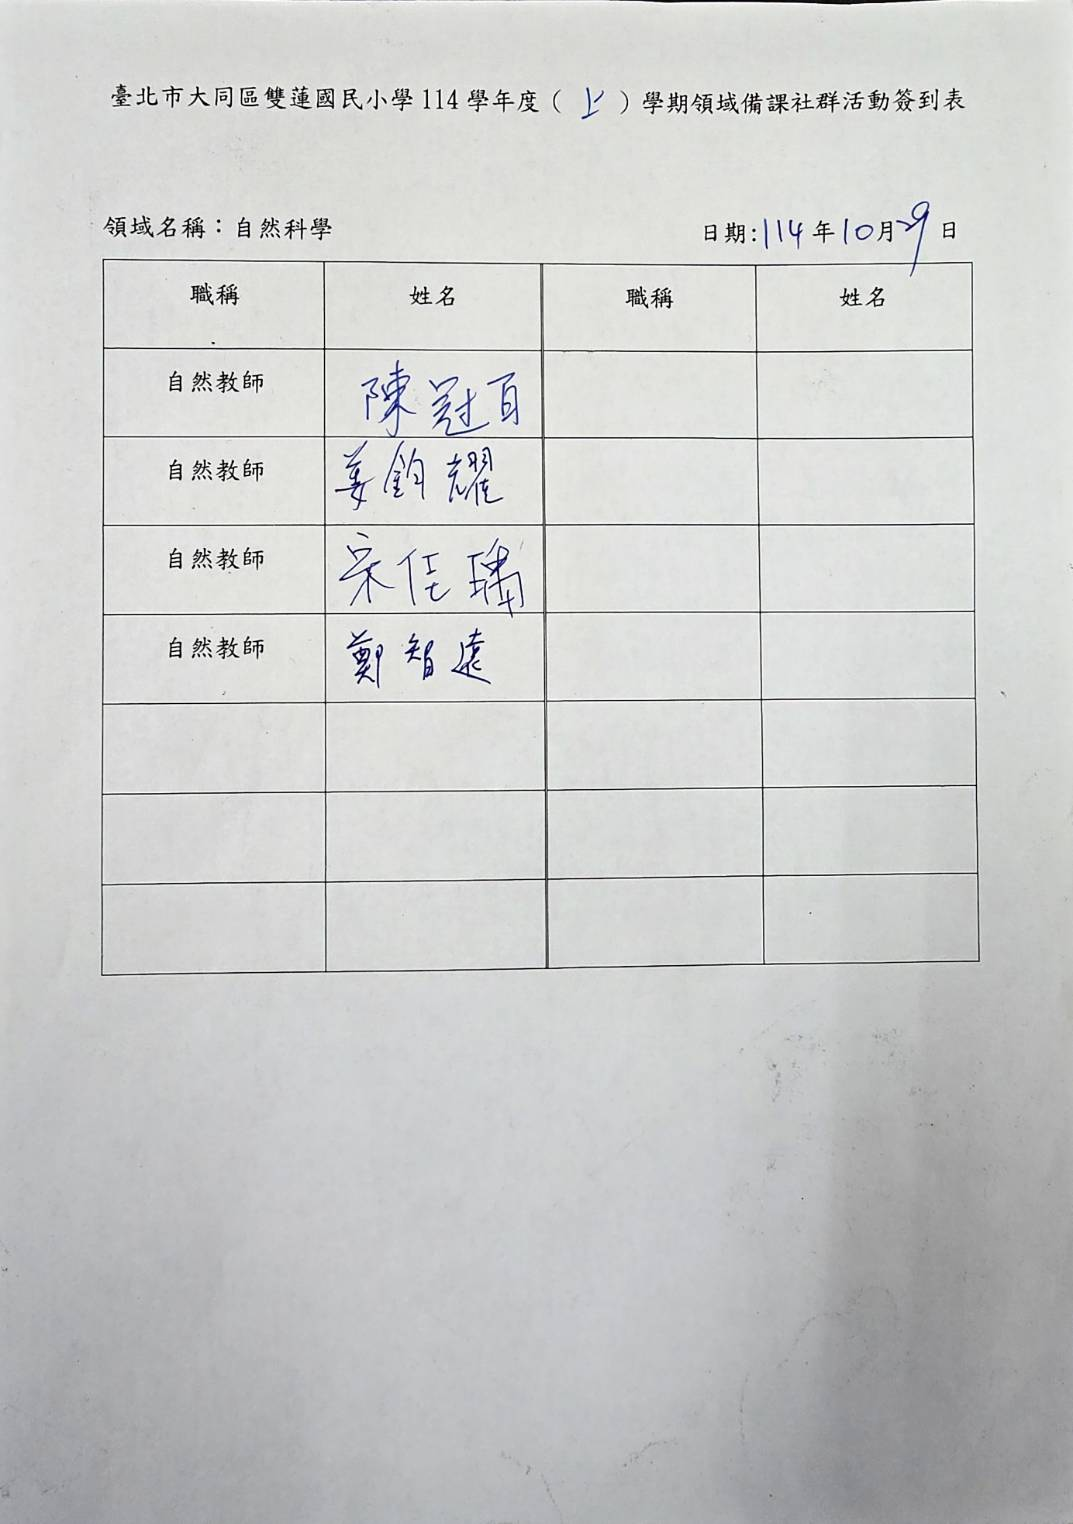 臺北市大同區雙蓮國民小學 114 學年度（上）學期領域備課社群活動簽到表
領域名稱：自然科學 日期:114年10月29日
職稱 姓名 職稱 姓名
自然教師 陳冠百
自然教師 姜鈞耀
自然教師 宋佳璚
自然教師 鄭智遠